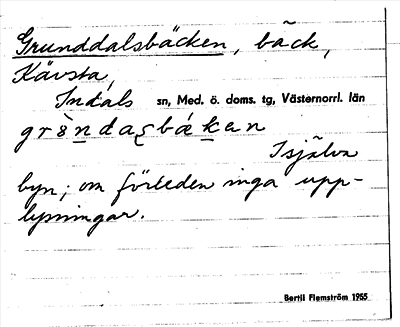 Grunddalsbäcken, bäck,
Kävsta,
Indals sn, Med. ö. doms. tg, Västernorrl. län
I själva
byn; om förleden inga upp-
lysningar.
Bertil Flemström 1955